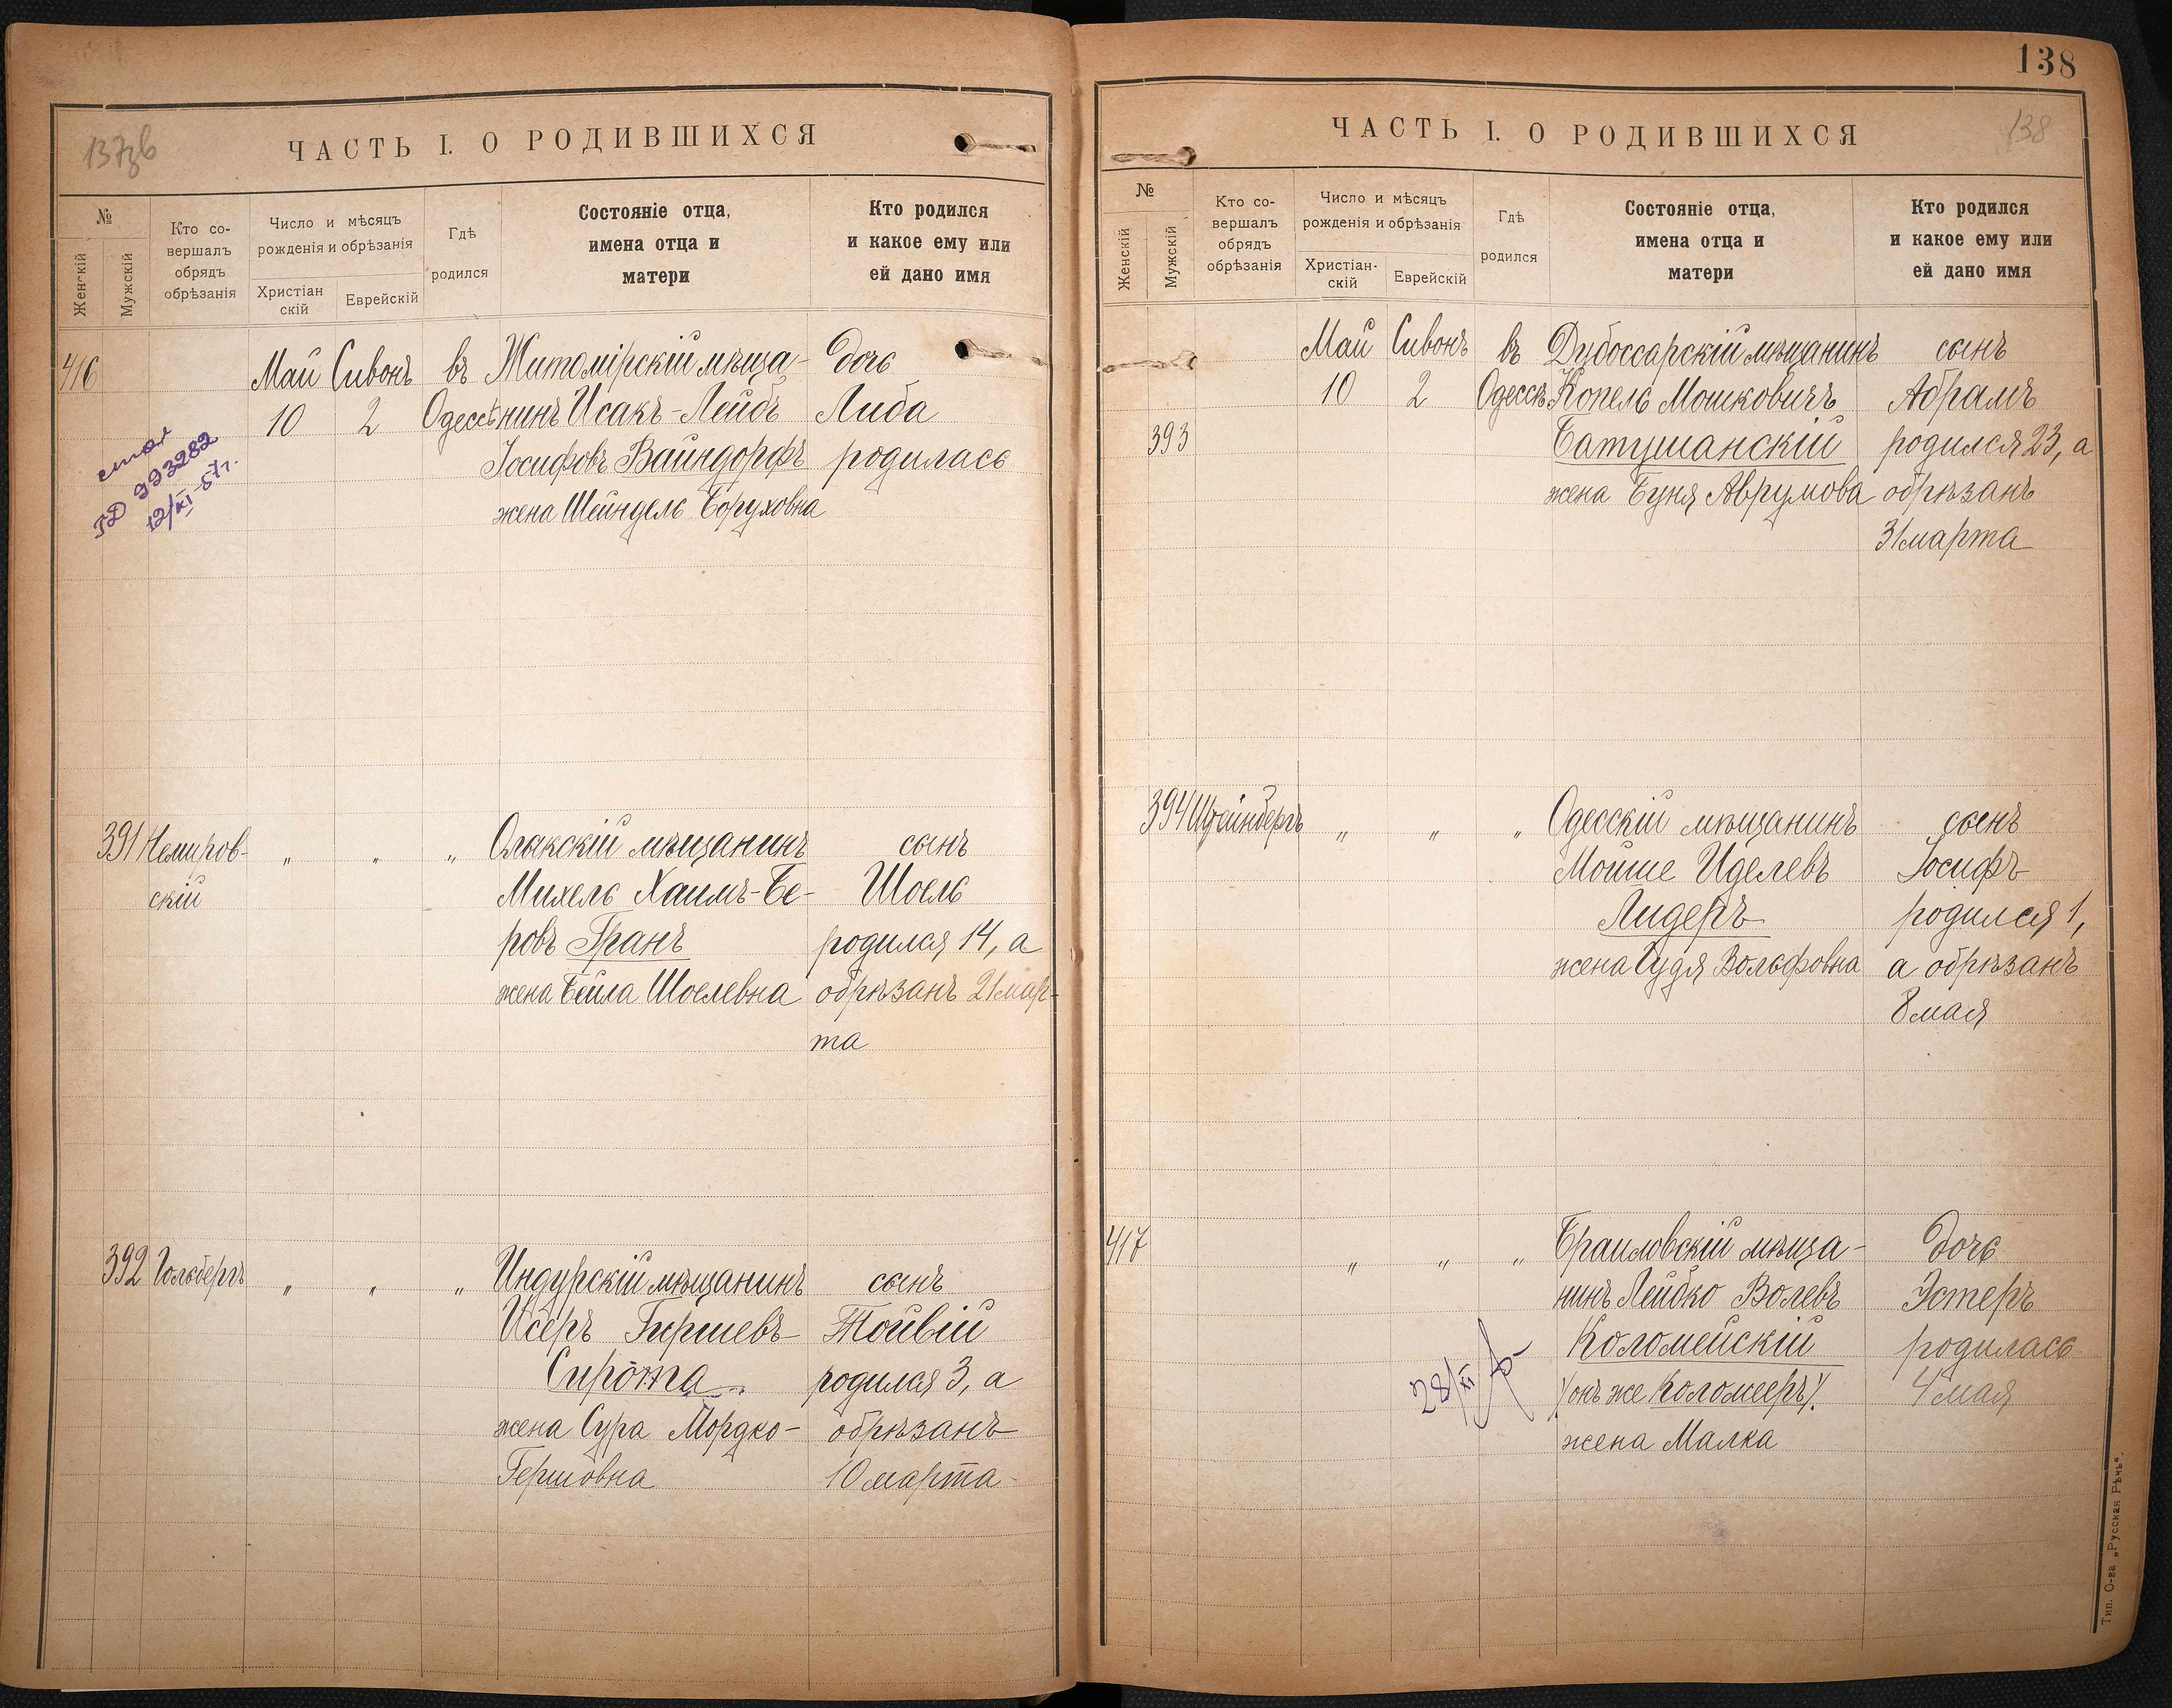 137зв
ЧАСТЬ I. О РОДИВШИХСЯ
№
Женскій
Мужскій
Кто со-
вершалъ
обрядъ
обрѣзанія
Число и мѣсяцъ
рожденія и обрѣзанія
Христіан
скій
Еврейскій
Гдѣ
родился
Состояніе отца,
имена отца и
матери
Кто родился
и какое ему или
ей дано имя
416
Май Сивонъ въ Житомірскій мѣща- дочь
10 2 Одессѣ нинъ Исакъ-Лейбъ Либа
Іосифовъ Вайндорфъ родилась
жена Шейндель Боруховна
993282
12/XI-57г.
391 Немиров- " " " Олакскій мѣщанинъ сынъ
скій Михель Хаимъ-Бе- Шоель
ровъ Гранъ родился 14, а
жена Бейла Шоелевна обрѣзанъ 21 мар-
та
392 Гольбергъ " " " Индурскій мѣщанинъ сынъ
Исеръ Гиршевъ Тойвій
Сирота родился 3, а
жена Сура Мордко- обрѣзанъ
Гершовна 10 марта
138
138
ЧАСТЬ I. О РОДИВШИХСЯ
№
Женскій
Мужскій
Кто со-
вершалъ
обрядъ
обрѣзанія
Число и мѣсяцъ
рожденія и обрѣзанія
Христіан-
скій
Еврейскій
Гдѣ
родился
Состояніе отца,
имена отца и
матери
Кто родился
и какое ему или
ей дано имя
Май Сивонъ въ Дубоссарскій мѣщанинъ сынъ
10 2 Одессѣ Копель Мошковичъ Абрамъ
393 Батушанскій родился 23, а
жена Буня Аврумова обрѣзанъ
31 марта
394 Штейнбергъ " " " Одесскій мѣщанинъ сынъ
Мойше Иделевъ Іосифъ
Лидеръ родился 1,
жена Гудя Вольфовна а обрѣзанъ
8 мая
417 " " " Браиловскій мѣща- дочь
нинъ Лейбко Волевъ Эстеръ
Коломейскій родилась
/онъ же Коломееръ/. 4 мая
жена Малка
28/XI
Тип. О-ва „Русская Рѣчь".